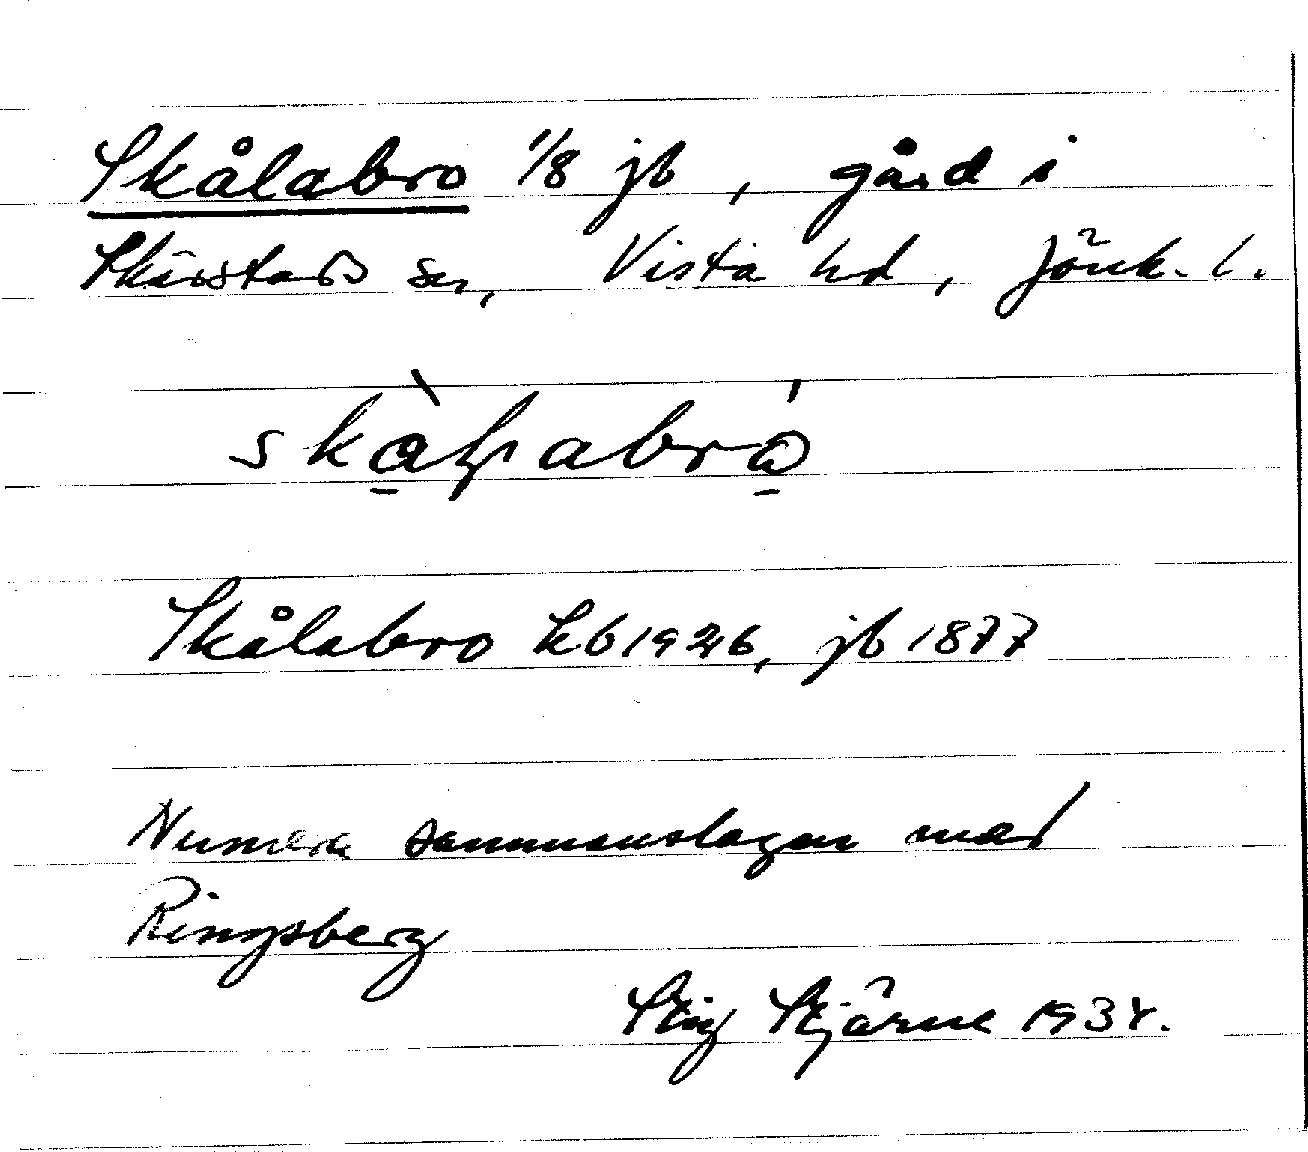 Skålabro 1/8 jb, gård i
Skärstads sn, Vista hd, Jönk. l.
Skålabro kb 1926, jb 1877
Numera sammanslagen med
Ringsberg
Stig Stjärne